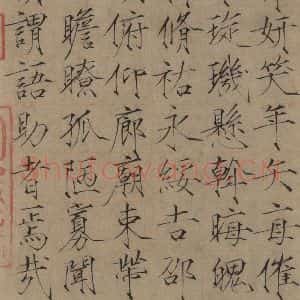 妍笑年矢每催
琁璣懸斡晦魄
脩祜永綏吉邵
俯仰廊廟束帶
瞻瞭孤陋寡聞
謂語助者焉哉